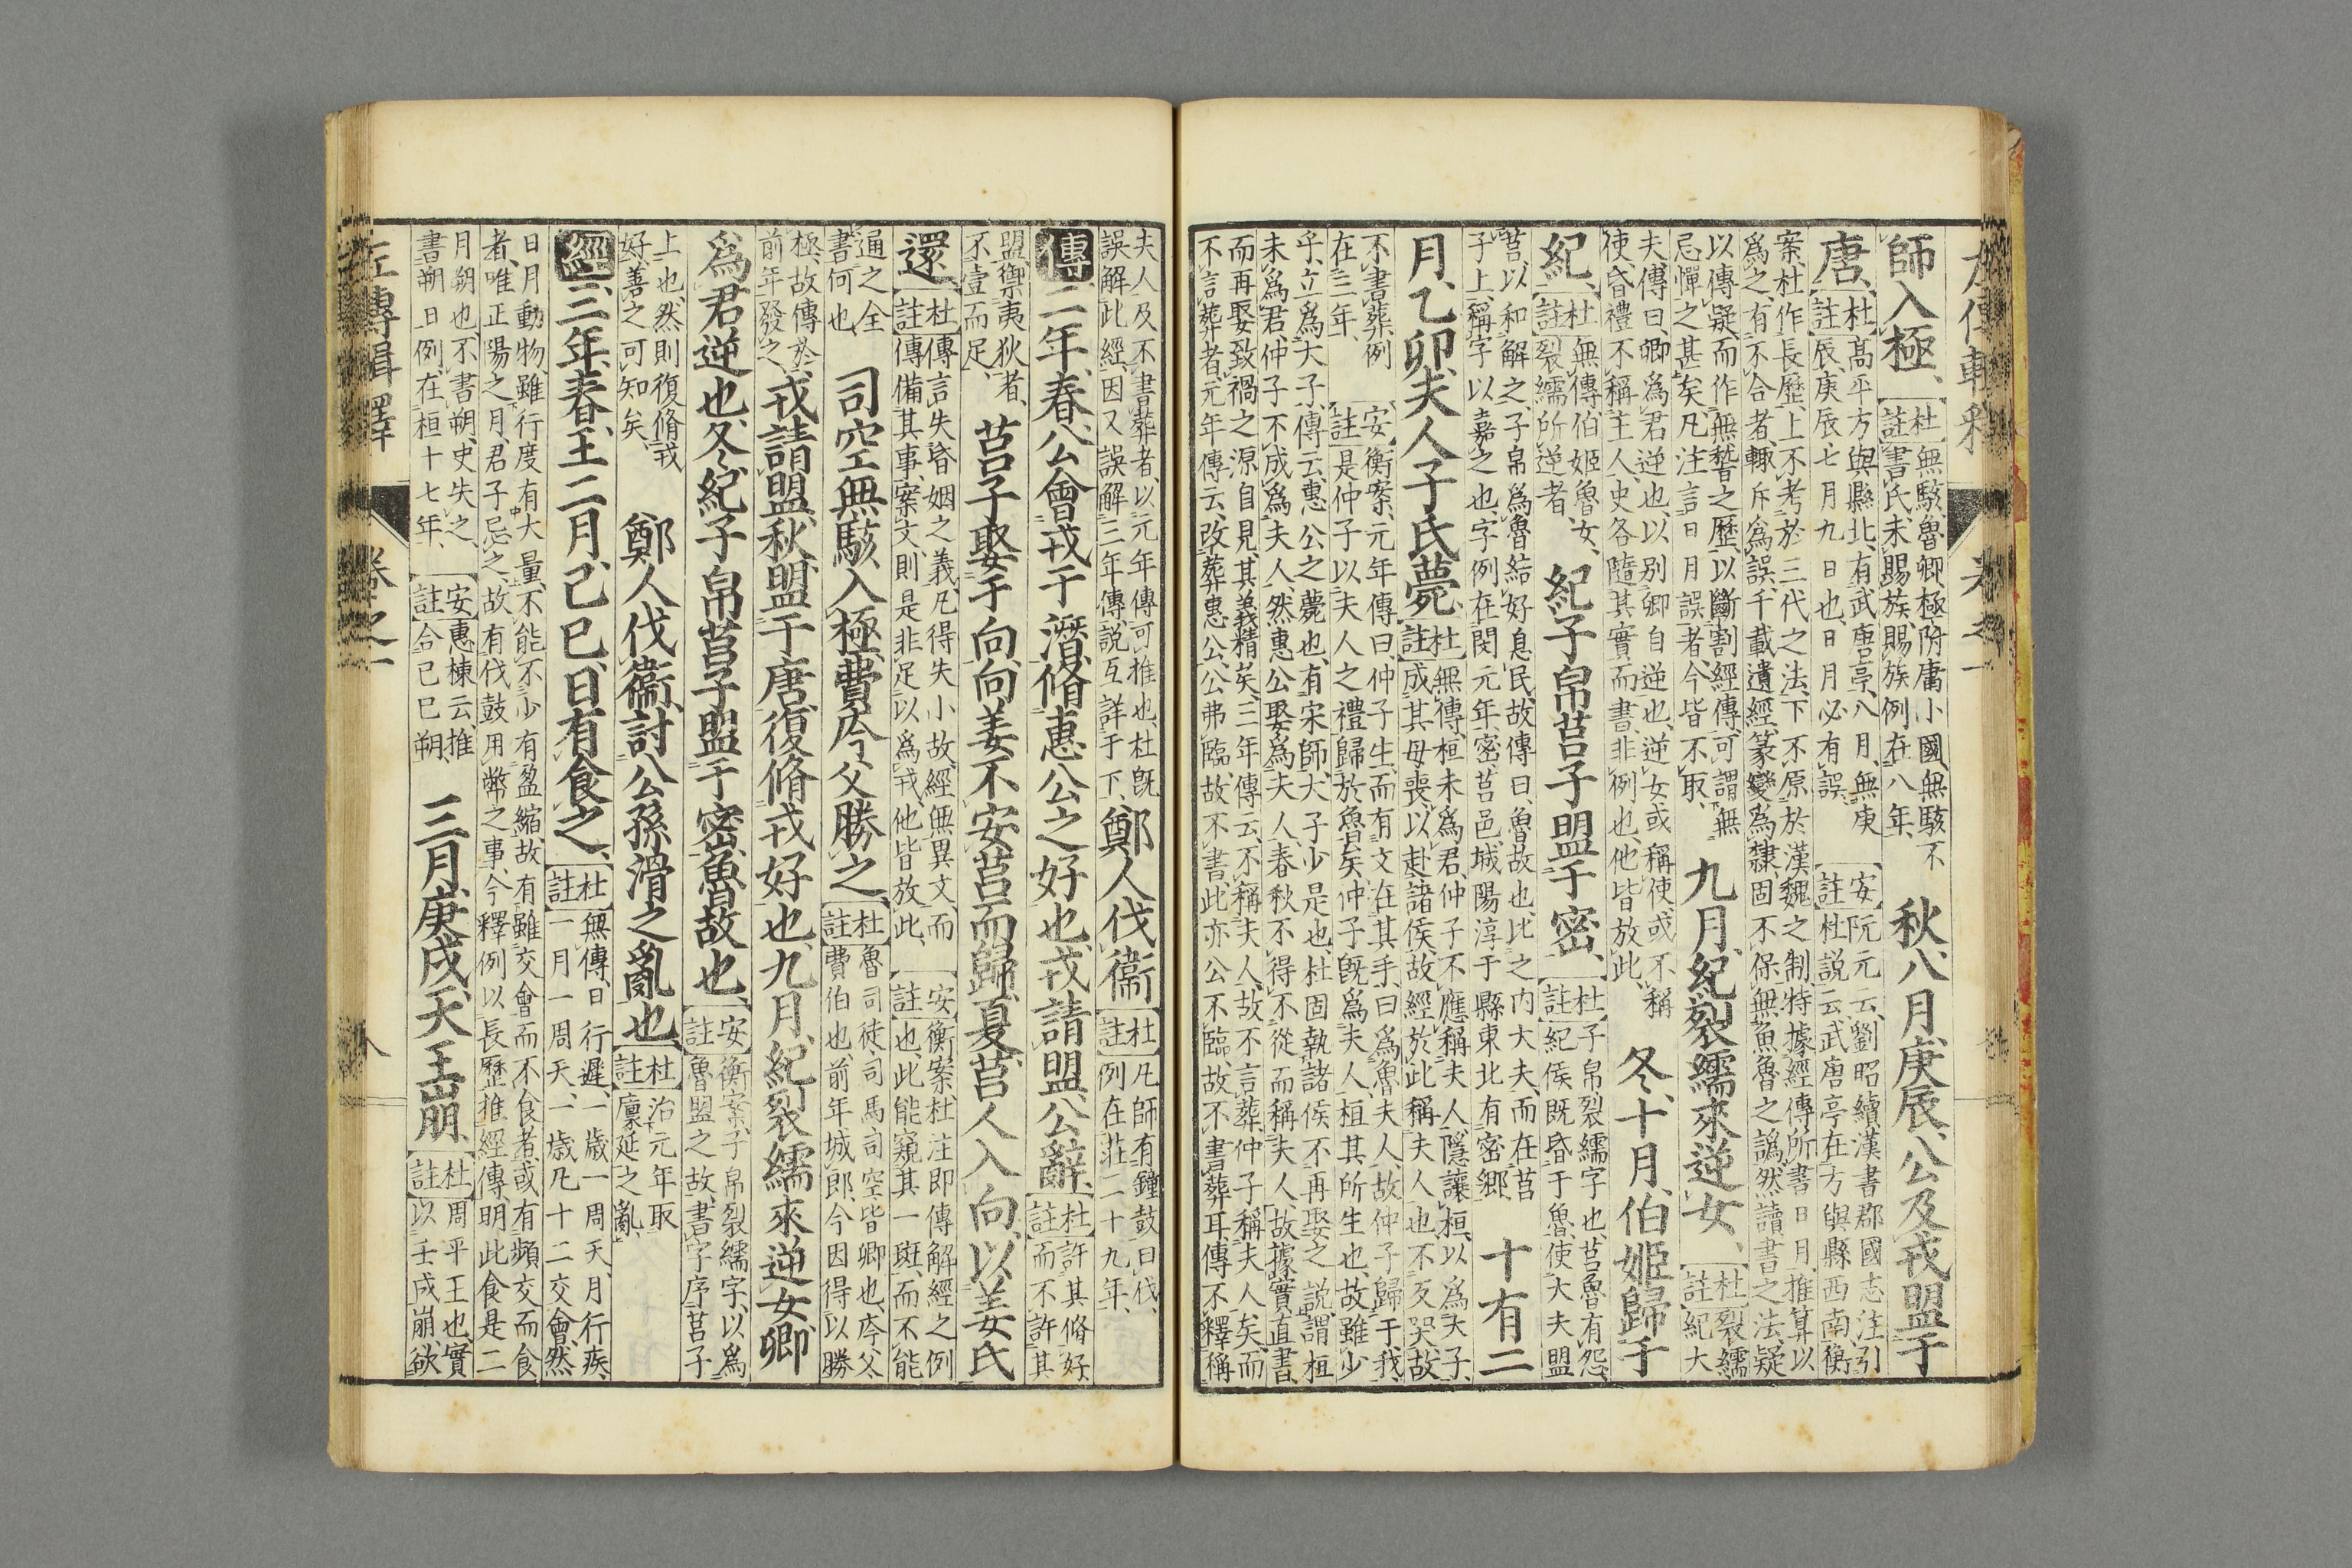 左傳輯釋 卷之一
師入極、杜註 無駭魯卿、極附庸小國、無駭不
書氏、未賜族、賜族例在八年、
秋、八月、庚辰、公及戎盟于
唐、杜註 高平方與縣北、有武唐亭、八月無庚
辰、庚辰七月九日也、日月必有誤、
安註 阮元云、劉昭續漢書郡國志注引
杜説云、武唐亭在方與縣西南、衡
案、杜作長歷、上不考於三代之法、下不原於漢魏之制、特據經傳所書日月、推算以
爲之、有不合者、輙斥爲誤、千載遺經、篆變爲隸、固不保無魚魯之譌、然讀書之法、疑
以傳疑、而作無誓之歷、以斷割經傳、可謂無
忌憚之甚矣、凡注言日月誤者、今皆不取、
九月、紀裂繻來逆女、杜註 裂繻
紀大
夫、傳曰、卿爲君逆也、以別卿自逆也、逆女或稱使、或不稱
使、昏禮不稱主人、史各隨其實而書、非例也、他皆放此、
冬、十月、伯姬歸于
紀、杜註 無傳、伯姬魯女、
裂繻所逆者、
紀子帛莒子盟于密、杜註 子帛裂繻字也、莒魯有怨、
紀侯既昏于魯、使大夫盟
莒、以和解之、子帛爲魯結好息民、故傳曰、魯故也、比之内大夫、而在莒
子上、稱字以嘉之也、字例在閔元年、密莒邑、城陽淳于縣東北有密鄉、
十有二
月、乙卯、夫人子氏薨、杜註 無傳、桓未爲君、仲子不應稱夫人、隱讓桓以爲大子、
成其母喪、以赴諸侯、故經於此稱夫人也、不反哭、故
不書葬、例
在三年、
安註 衡案、元年傳曰、仲子生、而有文在其手、曰爲魯夫人、故仲子歸于我、
是仲子以夫人之禮歸於魯矣、仲子既爲夫人、桓其所生也、故雖少
乎、立爲大子、傳云、惠公之薨也、有宋師、大子少是也、杜固執諸侯不再娶之説、謂桓
未爲君、仲子不成爲夫人、然惠公娶爲夫人、春秋不得不從而稱夫人、故據實直書、
而再娶致禍之源自見、其義精矣、三年傳云、不稱夫人、故不言葬、仲子稱夫人矣、而
不言葬者、元年傳云、改葬惠公、公弗臨、故不書、此亦公不臨、故不書葬耳、傳不釋稱
夫人及不書葬者、以元年傳可推也、杜既
誤解此經、因又誤解三年傳、説互詳于下、
鄭人伐衞、杜註 凡師有鐘鼓曰伐、
例在莊二十九年、
傳 二年、春、公會戎于潛、脩惠公之好也、戎請盟、公辭、杜註 許其脩好、
而不許其
盟、禦夷狄者、
不壹而足、
莒子娶于向、向姜不安莒而歸、夏、莒人入向、以姜氏
還、杜註 傳言失昏姻之義、凡得失小故、經無異文、而
傳備其事、案文則是非足以爲戒、他皆放此、
安註 衡案、杜注即傳解經之例
也、此能窺其一斑、而不能
通之全
書何也、
司空無駭入極、費庈父勝之、杜註 魯司徒司馬司空皆卿也、庈父
費伯也、前年城郎、今因得以勝
極、故傳於
前年發之、
戎請盟、秋、盟于唐、復脩戎好也、九月、紀裂繻來逆女、卿
爲君逆也、冬、紀子帛莒子盟于密、魯故也、安註 衡案、子帛裂繻字、以爲
魯盟之故、書字序莒子
上也、然則復脩戎
好、善之可知矣、
鄭人伐衞、討公孫滑之亂也、杜註 治元年取
廩延之亂、
經 三年、春、王二月、己巳、日有食之、杜註 無傳、日行遲、一歳一周天、月行疾、
一月一周天、一歳凡十二交會、然
日月動物、雖行度有大量、不能不少有盈縮、故有雖交會而不食者、或有頻交而食
者、唯正陽之月、君子忌之、故有伐鼓用幣之事、今釋例以長歷推經傳、明此食是二
月朔也、不書朔、史失之、
書朔日例、在桓十七年、
安註 惠棟云、推
合己巳朔、
三月、庚戌、天王崩、杜註 周平王也、實
以壬戌崩、欲
左傳輯釋 卷之一 八